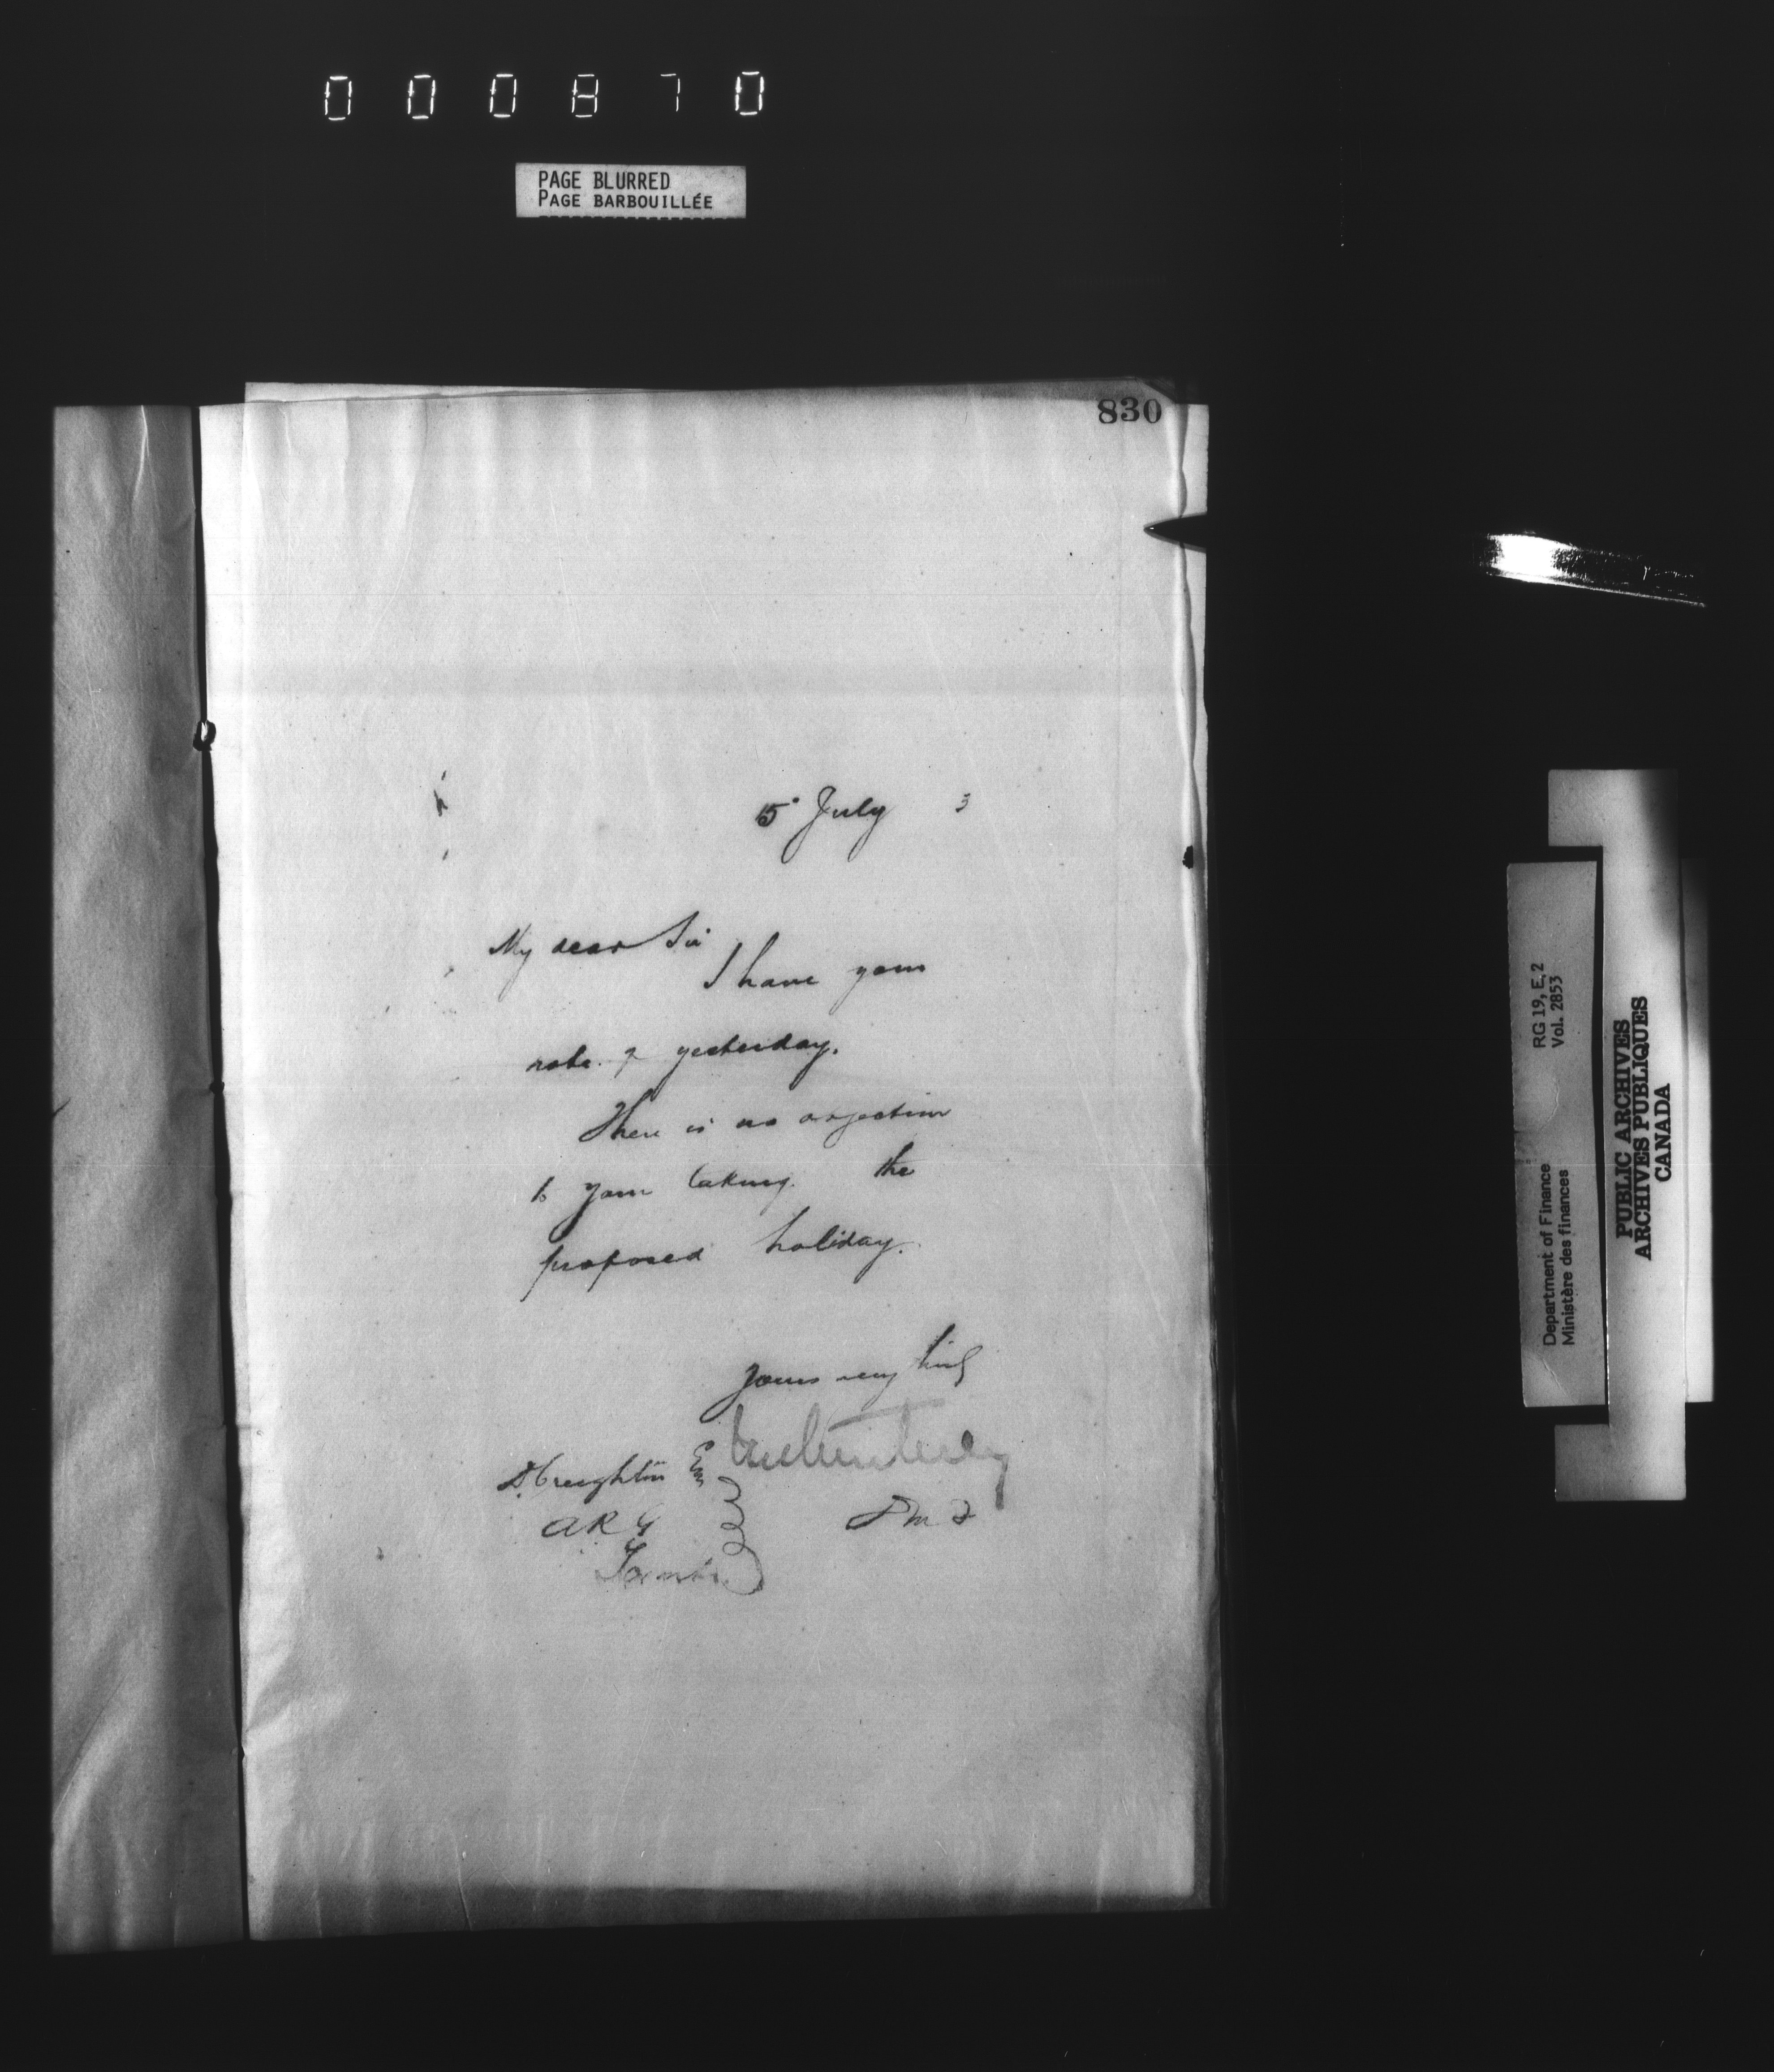 000870
PAGE BLURRED
PAGE BARBOUILLÉE
830
15 July 3
My dear Sir
I have your
note of yesterday.
There is no objection
to your taking the
proposed holiday.
Yours very truly
D. Creighton Esq
A R G
Toronto
D M F
RG 19, E, 2
Vol. 2853
Department of Finance
Ministère des finances
PUBLIC ARCHIVES
ARCHIVES PUBLIQUES
CANADA